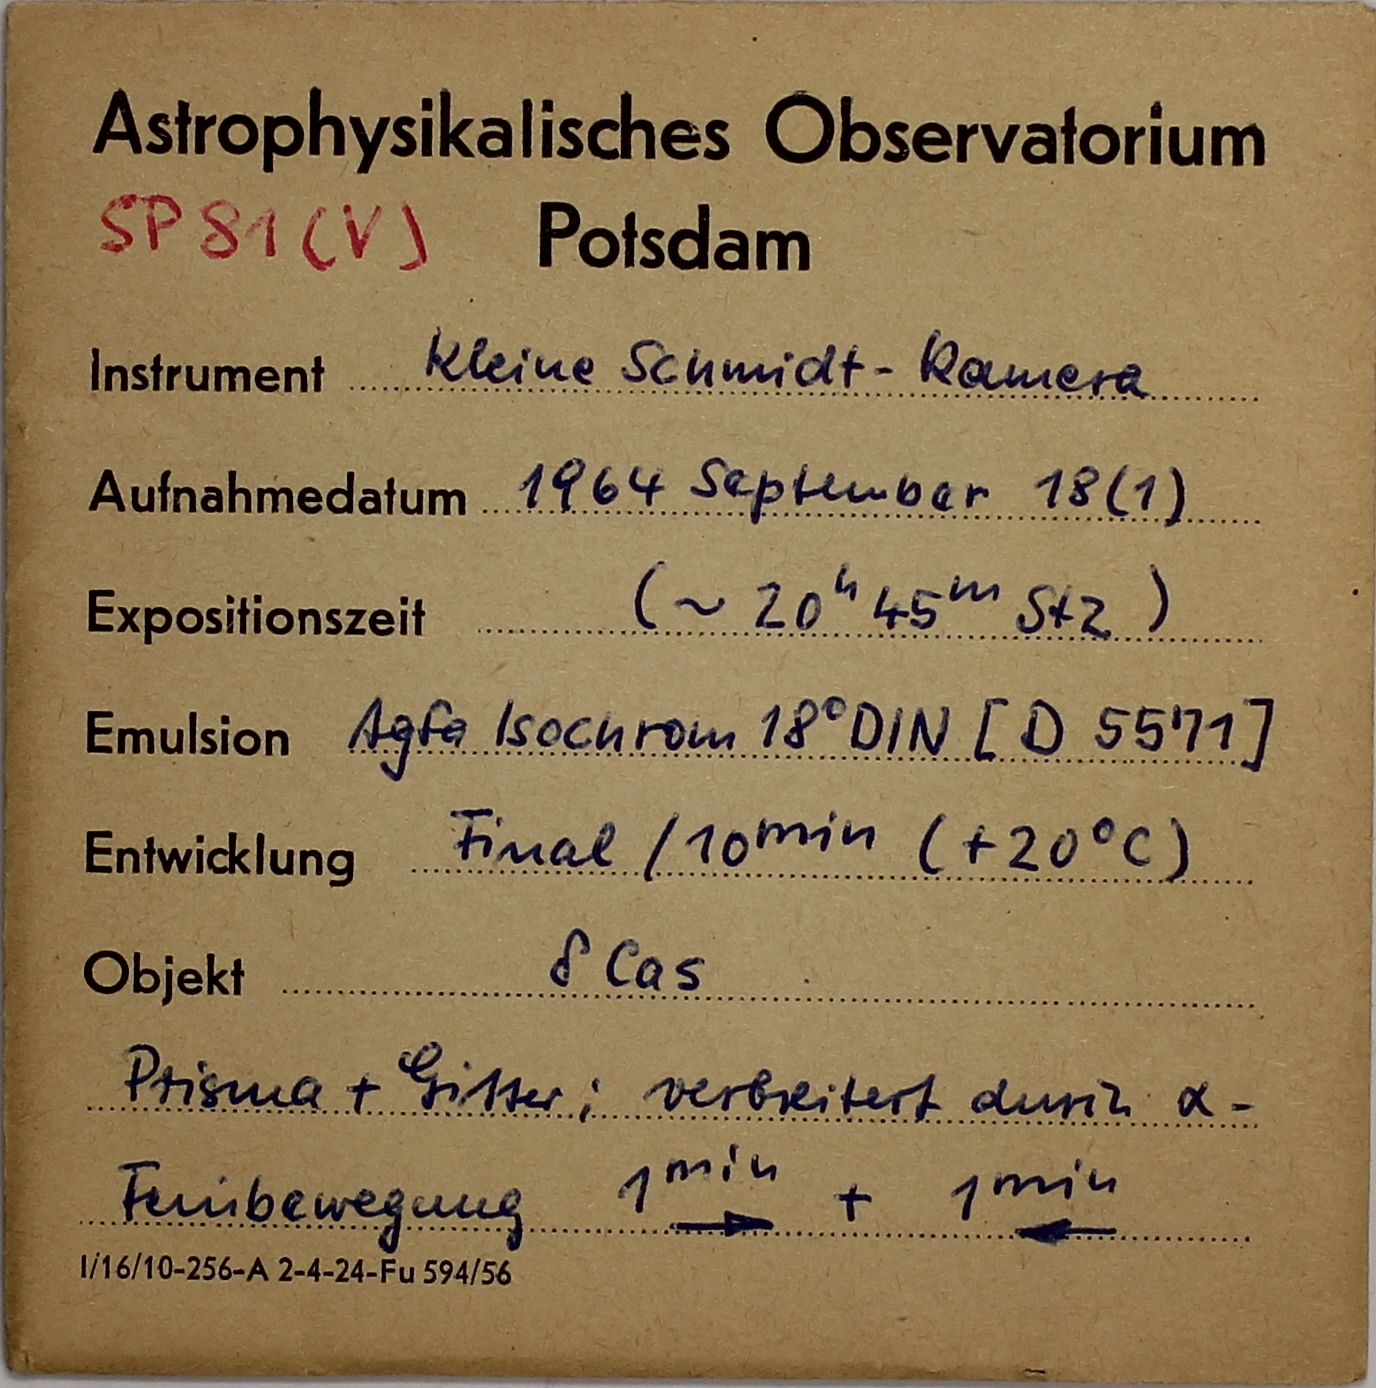 Astrophysikalisches Observatorium
SP 81 (V) Potsdam
Instrument Kleine Schmidt-Kamera
Aufnahmedatum 1964 September 18(1)
Expositionszeit (~ 20h 45m Stz)
Emulsion Agfa Isochrom 18° DIN [D 5571]
Entwicklung Final / 10min (+20°C)
Objekt δ Cas
Prisma + Gitter; verbreitert durch α-
Feinbewegung 1min → + 1min ←
I/16/10-256-A 2-4-24-Fu 594/56